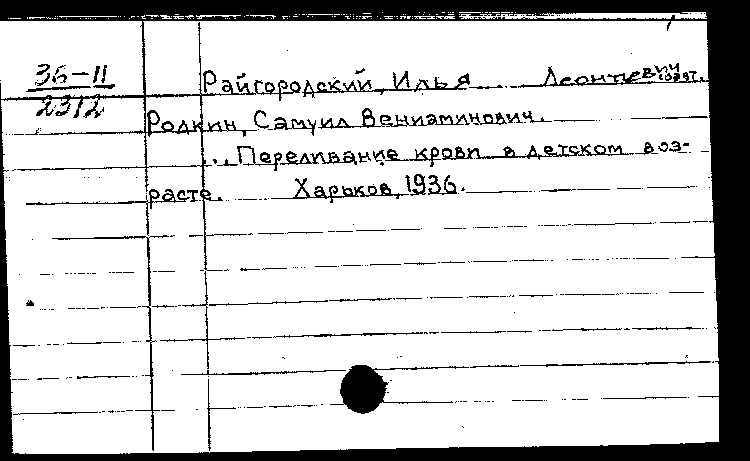 36-11
2312
Райгородский, Илья Леонтьевич
Родкин, Самуил Вениаминович.
... Переливание крови в детском воз-
расте. Харьков, 1936.